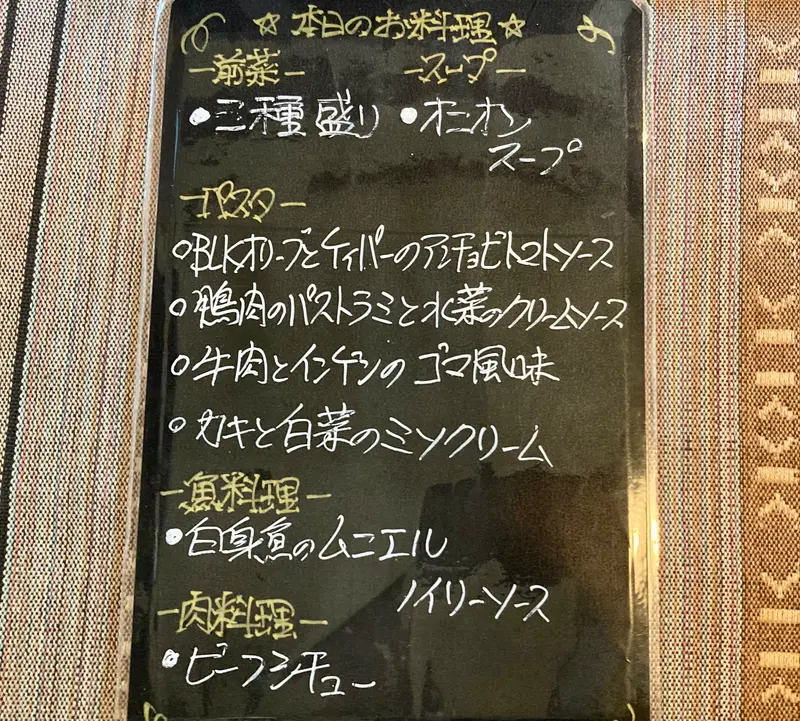 ☆本日のお料理☆
ー前菜ー ースープー
●三種盛り ●オニオン
スープ
ーパスターー
○BLKオリーブとケイパーのアンチョビトマトソース
○鴨肉のパストラミと水菜のクリームソース
○牛肉とインゲンのゴマ風味
○カキと白菜のミソクリーム
ー魚料理ー
●白身魚のムニエル
ノイリーソース
ー肉料理ー
●ビーフシチュー